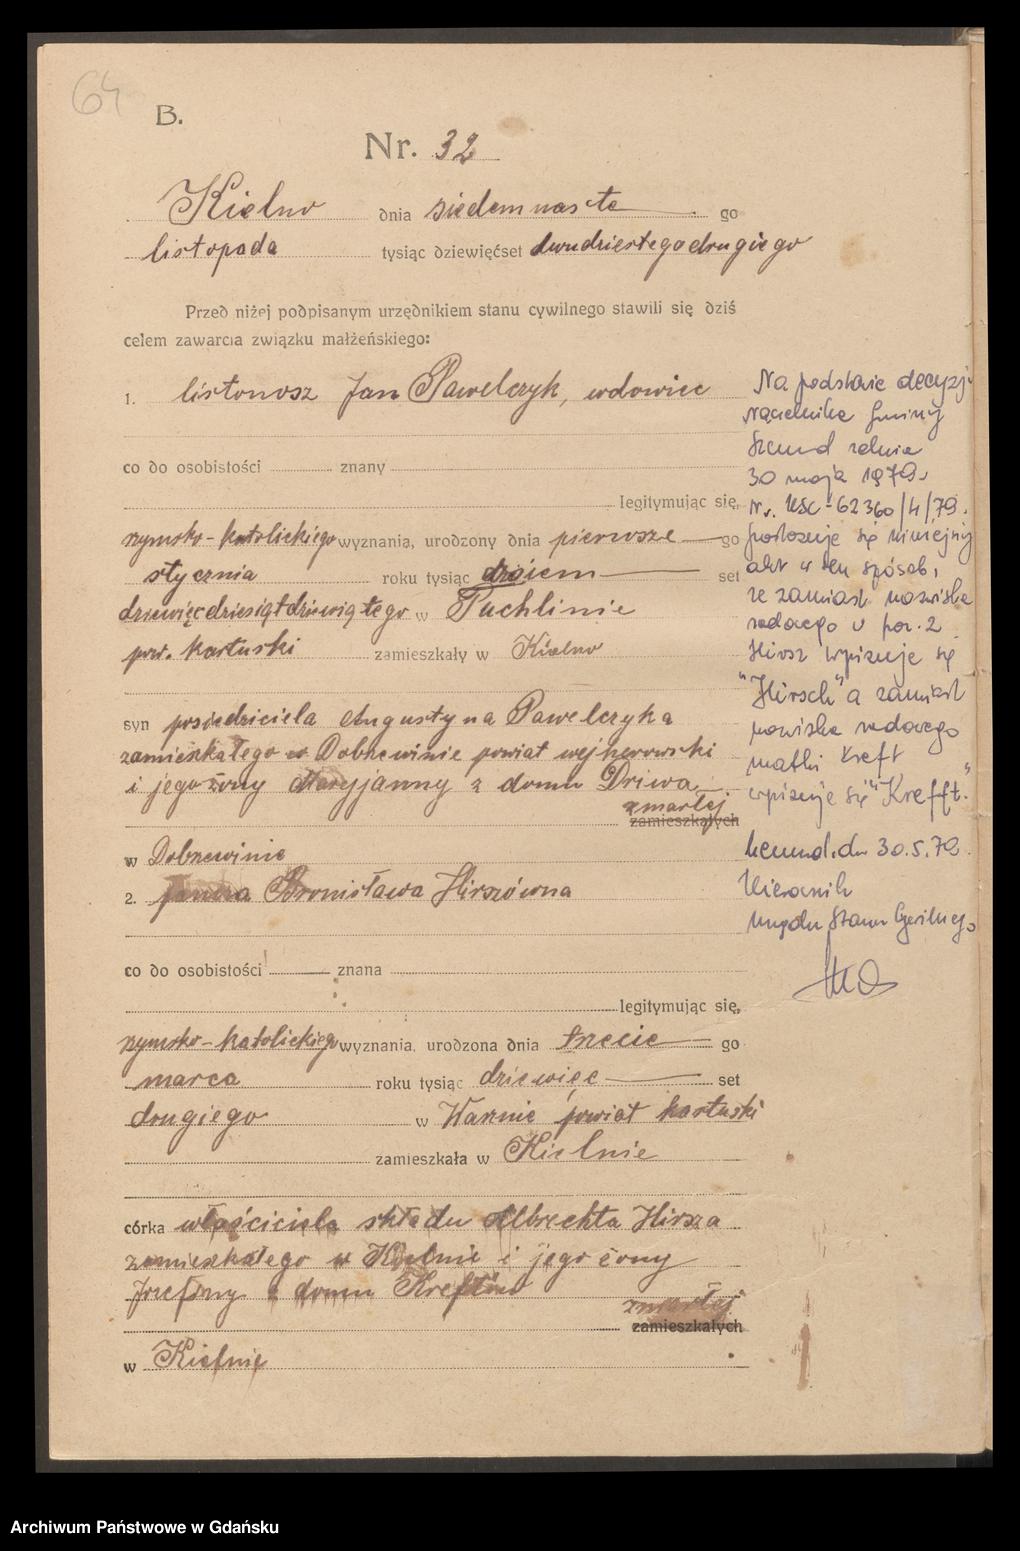 64
B.
Nr. 32
Kielno dnia siedemnaste go
listopada tysiąc dziewięćset dwudziestego drugiego
Przed niżej podpisanym urzędnikiem stanu cywilnego stawili się dziś
celem zawarcia związku małżeńskiego:
1. listonosz Jan Pawelczyk, wdowiec
co do osobistości znany
legitymując się,
rzymsko-katolickiego wyznania, urodzony dnia pierwsze go
stycznia roku tysiąc ośiem set
dziewięcdziesiątdziewiątego w Puchlinie
pow. kartuski zamieszkały w Kielno
syn posiedziciela Augustyna Pawelczyka
zamieszkałego w Dobrzewinie powiat wejherowski
i jego żony Maryjanny z domu Dziwa
zmarłej
zamieszkałych
w Dobrzewinie
2. Bronisława Hirszówna
co do osobistości znana
legitymując się,
rzymsko-katolickiego wyznania, urodzona dnia trzecie go
marca roku tysiąc dziewięc set
drugiego w Warznie powiat kartuski
zamieszkała w Kielnie
córka właściciela składu Albrechta Hirsza
zamieszkałego w Kielnie i jego żony
Józefiny z domu Kreftów
zmarłej
zamieszkałych
w Kielnie
Na podstawie decyzji
Naczelnika Gminy
Szemud z dnia
30 maja 1979.
Nr. USC-62360/4/79.
prostuje się niniejszy
akt w ten sposób,
że zamiast nazwiska
rodowego w poz. 2
Hirsz wpisuje się
"Hirsch" a zamiast
nazwiska rodowego
matki Kreft
wpisuje się "Krefft."
Szemud, dn. 30.5.79.
Kierownik
Urzędu Stanu Cywilnego
Archiwum Państwowe w Gdańsku